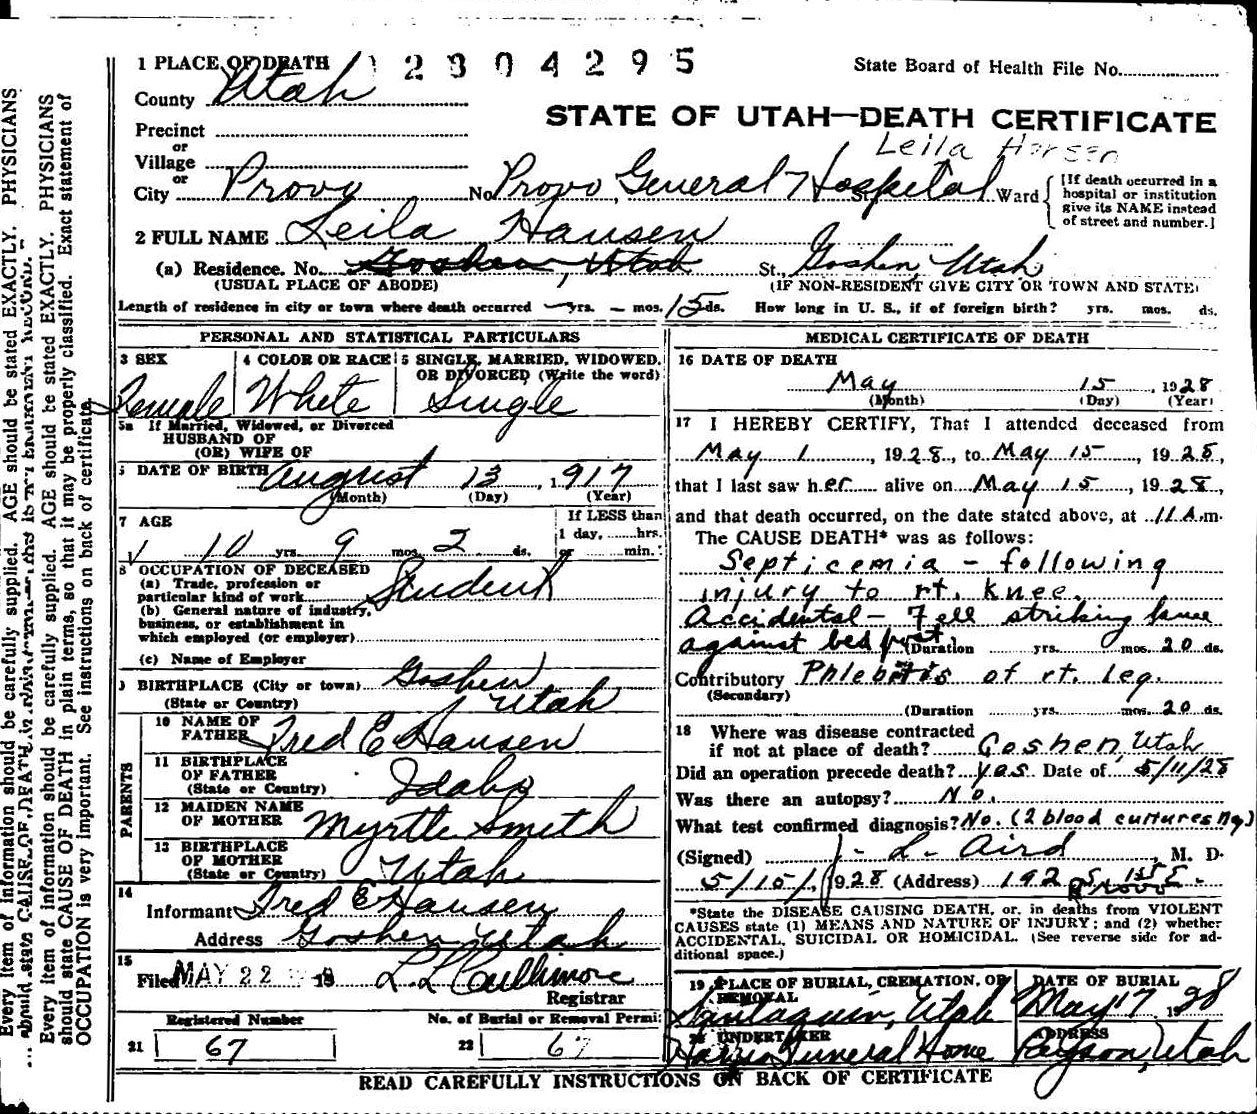 1 PLACE OF DEATH
2304295
State Board of Health File No.
County Utah
STATE OF UTAH—DEATH CERTIFICATE
Precinct
or
Village
Leila Hansen
or
City Provo No. Provo General Hospital St. Ward
[If death occurred in a
hospital or institution
give its NAME instead
of street and number.]
2 FULL NAME Leila Hansen
(a) Residence. No. Goshen, Utah St., Goshen, Utah
(USUAL PLACE OF ABODE) (IF NON-RESIDENT GIVE CITY OR TOWN AND STATE)
Length of residence in city or town where death occurred — yrs. — mos. 15 ds. How long in U. S., if of foreign birth? yrs. mos. ds.
PERSONAL AND STATISTICAL PARTICULARS
3 SEX
Female
4 COLOR OR RACE
White
5 SINGLE, MARRIED, WIDOWED,
OR DIVORCED (Write the word)
Single
5a If Married, Widowed, or Divorced
HUSBAND OF
(OR) WIFE OF
6 DATE OF BIRTH August 13, 1917
(Month) (Day) (Year)
7 AGE
10 yrs. 9 mos. 2 ds.
If LESS than
1 day, ......hrs.
or ...... min.
8 OCCUPATION OF DECEASED
(a) Trade, profession or
particular kind of work Student
(b) General nature of industry,
business, or establishment in
which employed (or employer)
(c) Name of Employer
9 BIRTHPLACE (City or town) Goshen
(State or Country) Utah
PARENTS
10 NAME OF
FATHER Fred E Hansen
11 BIRTHPLACE
OF FATHER
(State or Country) Idaho
12 MAIDEN NAME
OF MOTHER Myrtle Smith
13 BIRTHPLACE
OF MOTHER
(State or Country) Utah
14
Informant Fred E Hansen
Address Goshen, Utah
15
Filed MAY 22 19 L. L. Cullimore
Registrar
Registered Number
21 67
No. of Burial or Removal Permit
22 67
MEDICAL CERTIFICATE OF DEATH
16 DATE OF DEATH
May 15 1928
(Month) (Day) (Year)
17 I HEREBY CERTIFY, That I attended deceased from
May 1, 1928, to May 15, 1928,
that I last saw her alive on May 15, 1928,
and that death occurred, on the date stated above, at 11 A.m.
The CAUSE DEATH* was as follows:
Septicemia - following
injury to rt. knee.
Accidental - Fell striking knee
against bed post. (Duration yrs. mos. 20 ds.
Contributory Phlebitis of rt. leg.
(Secondary)
(Duration yrs. mos. 20 ds.
18 Where was disease contracted
if not at place of death? Goshen, Utah
Did an operation precede death? yes. Date of 5/11/28
Was there an autopsy? No.
What test confirmed diagnosis? No. (2 blood cultures Neg)
(Signed) J. L. Aird, M. D.
5/15/, 1928 (Address) 192 S. 1st E.
Provo
*State the DISEASE CAUSING DEATH, or, in deaths from VIOLENT
CAUSES state (1) MEANS AND NATURE OF INJURY; and (2) whether
ACCIDENTAL, SUICIDAL OR HOMICIDAL. (See reverse side for ad-
ditional space.)
19 PLACE OF BURIAL, CREMATION, OR
REMOVAL
Santaquin, Utah
DATE OF BURIAL
May 17 1928
20 UNDERTAKER
Funeral Home
ADDRESS
Payson, Utah
READ CAREFULLY INSTRUCTIONS ON BACK OF CERTIFICATE
Every item of information should be carefully supplied. AGE should be stated EXACTLY. PHYSICIANS
should state CAUSE OF DEATH in plain terms, so that it may be properly classified. Exact statement of
OCCUPATION is very important. See instructions on back of certificate.